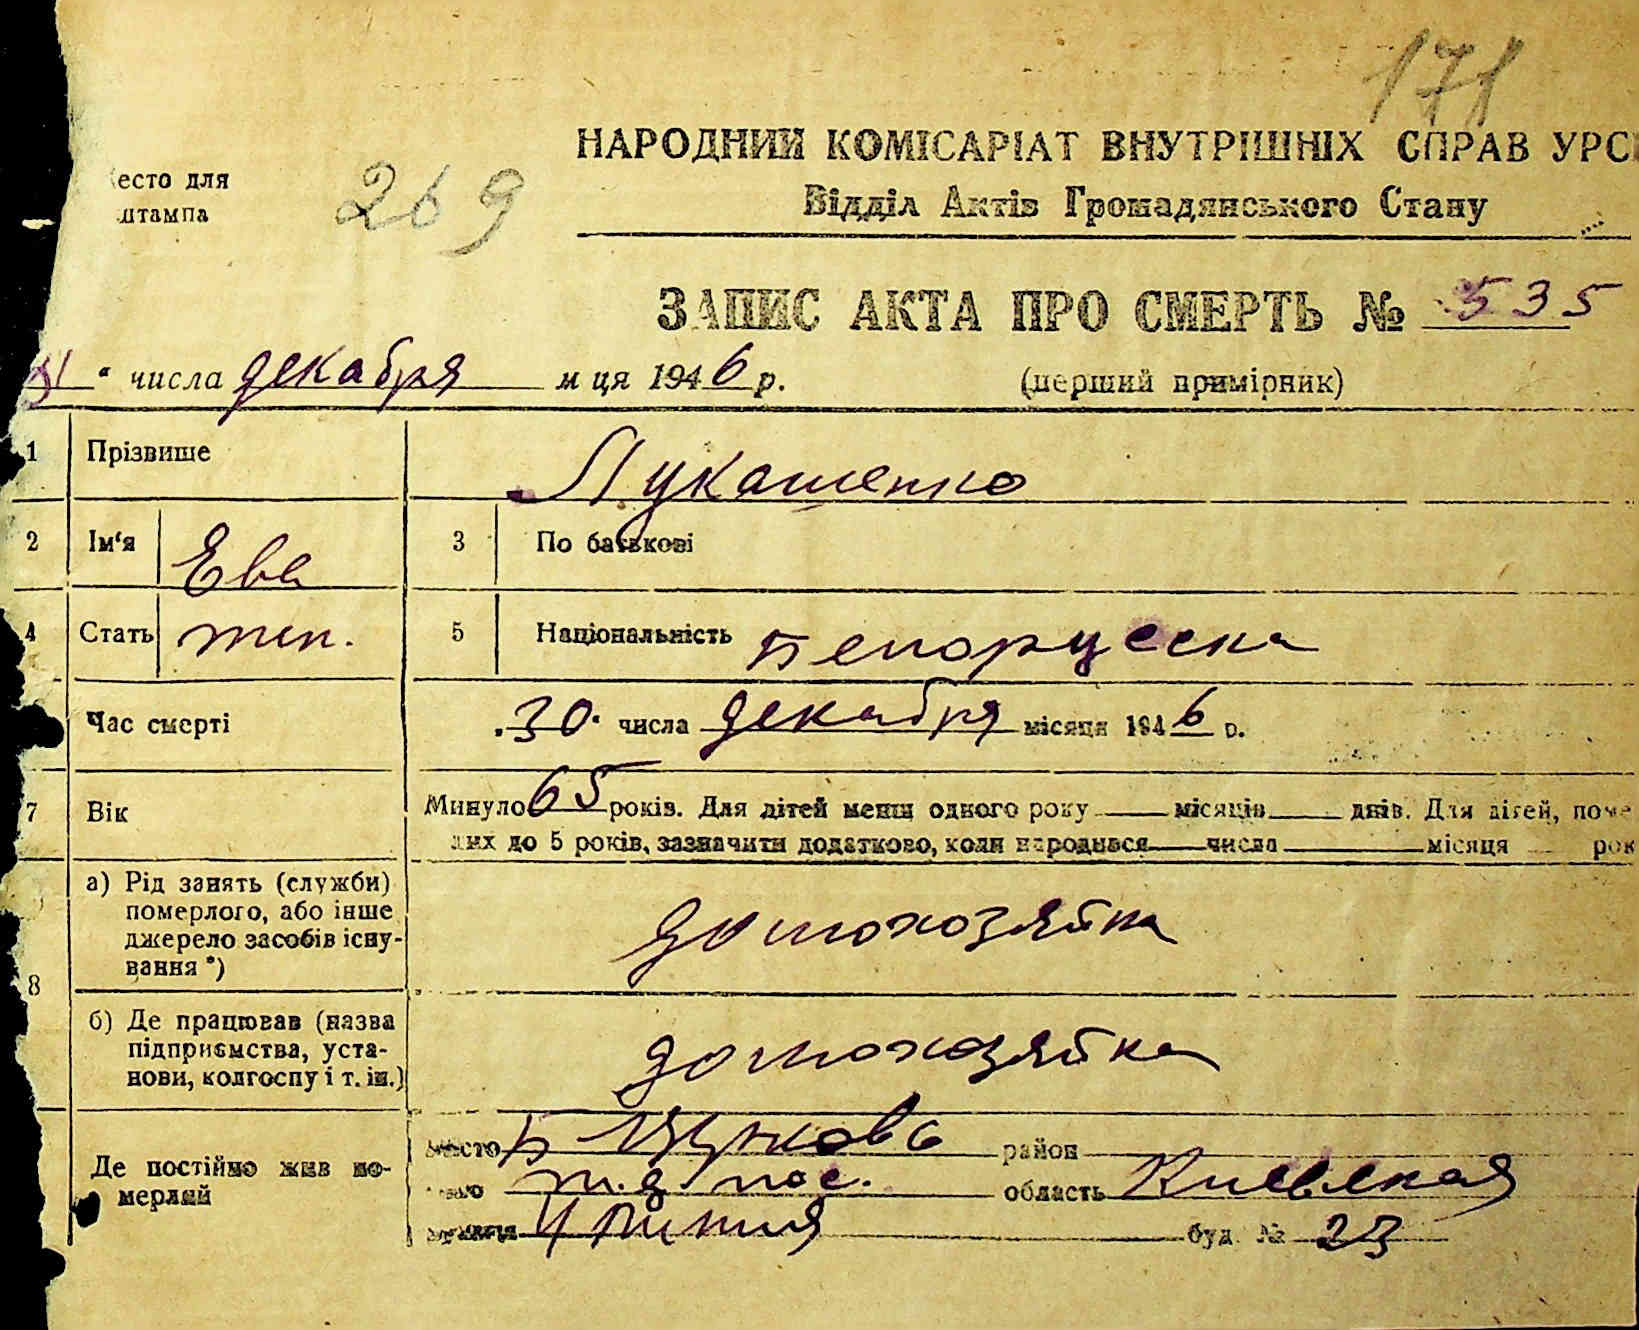 171
НАРОДНИЙ КОМІСАРІАТ ВНУТРІШНІХ СПРАВ УРС
Відділ Актів Громадянського Стану
есто для
штампа
269
ЗАПИС АКТА ПРО СМЕРТЬ № 535
31 " числа декабря м ця 1946 р.
(перший примірник)
1 Прізвише Лукашенко
2 Ім'я Ева 3 По батькові
4 Стать жен. 5 Національність Белорусска
Час смерті 30 числа декабря місяця 1946 р.
7 Вік Минуло 65 років. Для дітей менш одного року місяців днів. Для дітей, поме
лих до 5 років, зазначити додатково, коли народився числа місяця рок
8 а) Рід занять (служби)
померлого, або інше
джерело засобів існу-
вання *)
домохозяйка
б) Де працював (назва
підприємства, уста-
нови, колгоспу і т. ін.)
домохозяйка
Де постійно жив по-
мерлий
місто Б Церковь район
ж.д. пос. область Киевская
4 линия буд. № 23